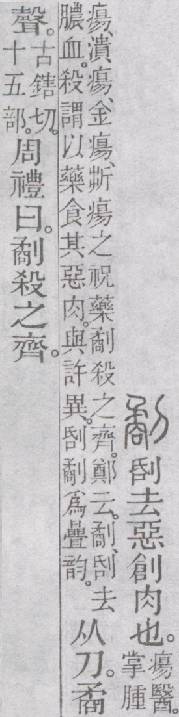 劀刮去惡創肉也。瘍醫。掌腫
瘍、潰瘍、金瘍、折瘍之祝藥劀殺之齊。鄭云。劀、刮去
膿血。殺謂以藥食其惡肉。與許異。刮劀爲疊韵。
从刀。矞
聲。古鎋切。十五部。周禮曰。劀殺之齊。